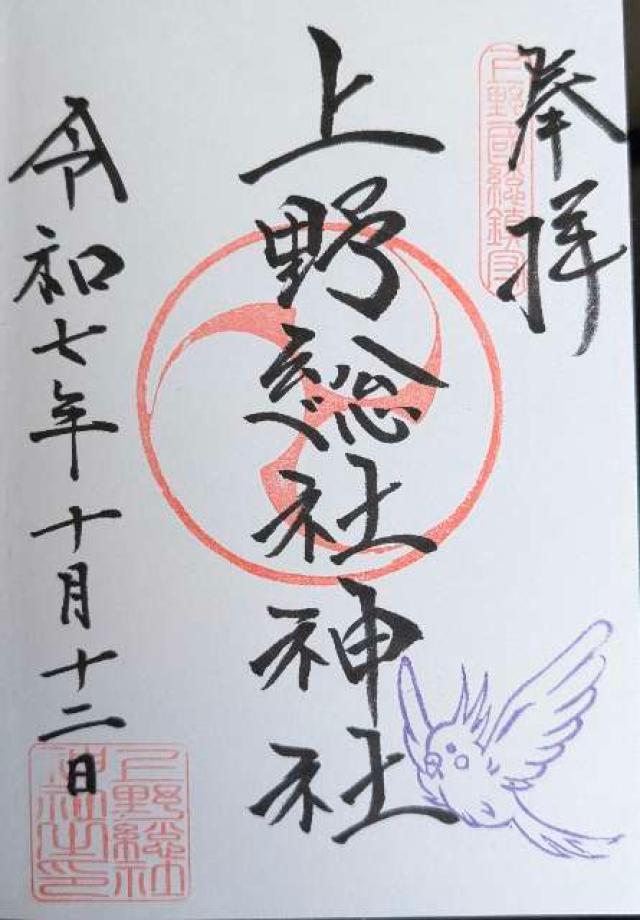 奉拝
上野國総鎮守
上野総社神社
令和七年十月十二日
上野総社
神社之印